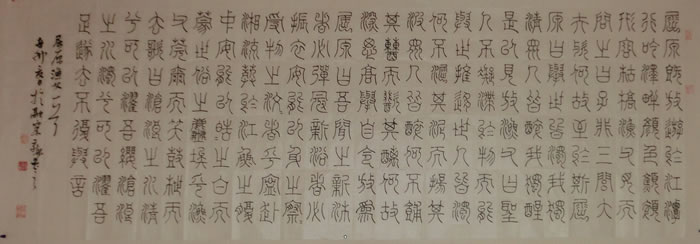 屈原既放游於江潭
行吟澤畔顏色憔悴
形容枯槁漁父見而
問之曰子非三閭大
夫與何故至於斯屈
原曰舉世皆濁我獨
清眾人皆醉我獨醒
是以見放漁父曰聖
人不凝滯於物而能
與世推移世人皆濁
何不淈其泥而揚其
波眾人皆醉何不餔
其糟而歠其醨何故
深思高舉自令放為
屈原曰吾聞之新沐
者必彈冠新浴者必
振衣安能以身之察
受物之者乎寧赴
湘流葬於江之魚腹
中安能以皓之白而
蒙世俗之塵埃乎漁
父莞爾而笑鼓枻而
去歌曰滄浪之水清
兮可以濯吾纓滄浪
之水濁兮可以濯吾
足遂去不復與言
屈原漁父
辛卯春於